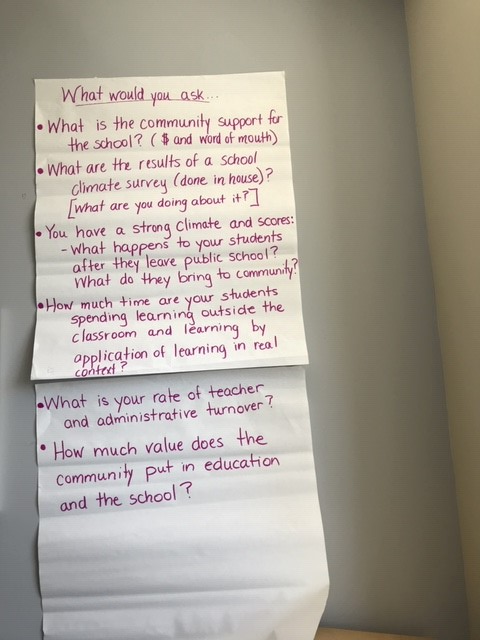 What would you ask...
• What is the community support for
the school? ($ and word of mouth)
• What are the results of a school
climate survey (done in house)?
[what are you doing about it?]
• You have a strong climate and scores:
- What happens to your students
after they leave public school?
What do they bring to community?
• How much time are your students
spending learning outside the
classroom and learning by
application of learning in real
context?
• What is your rate of teacher
and administrative turnover?
• How much value does the
community put in education
and the school?